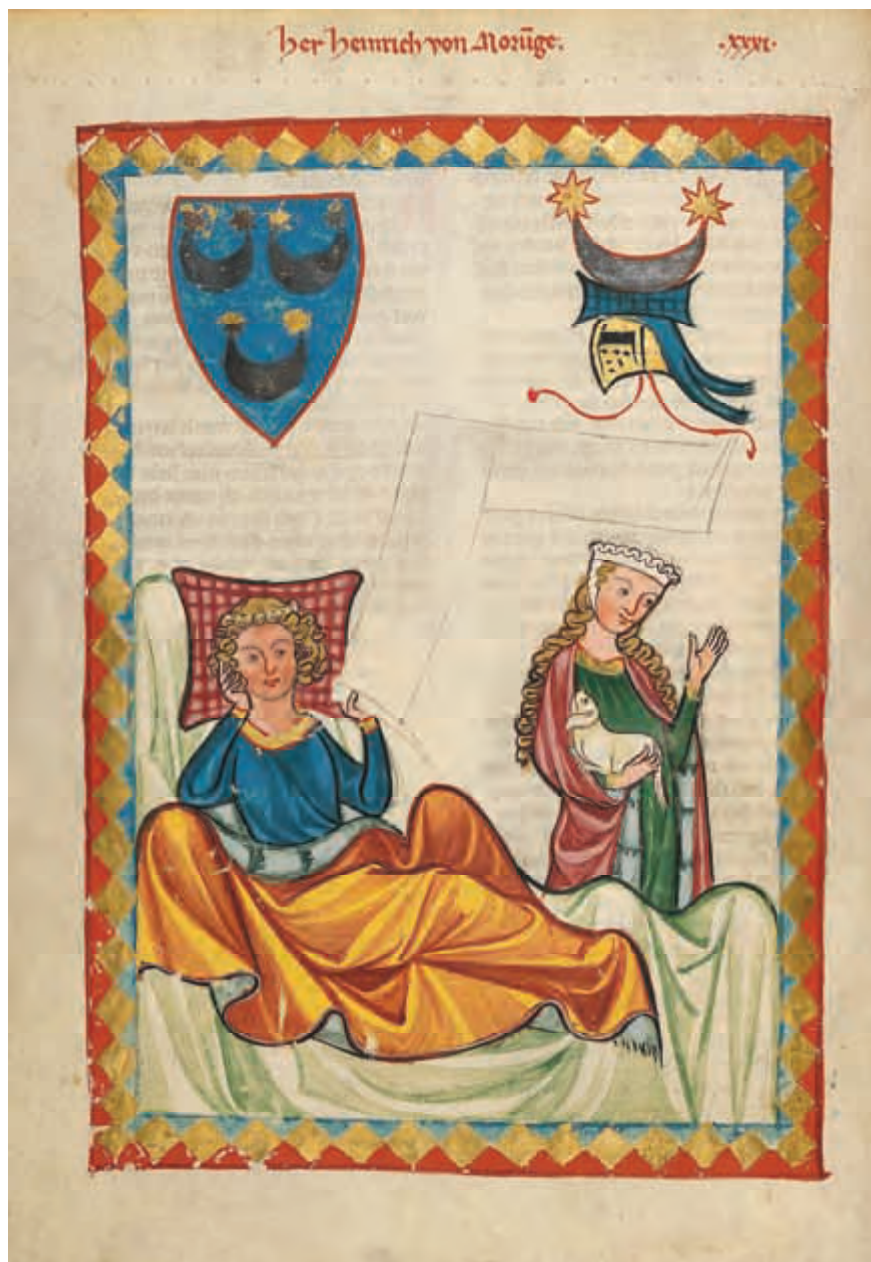 her heinrich von Morūge. ·xxxi·